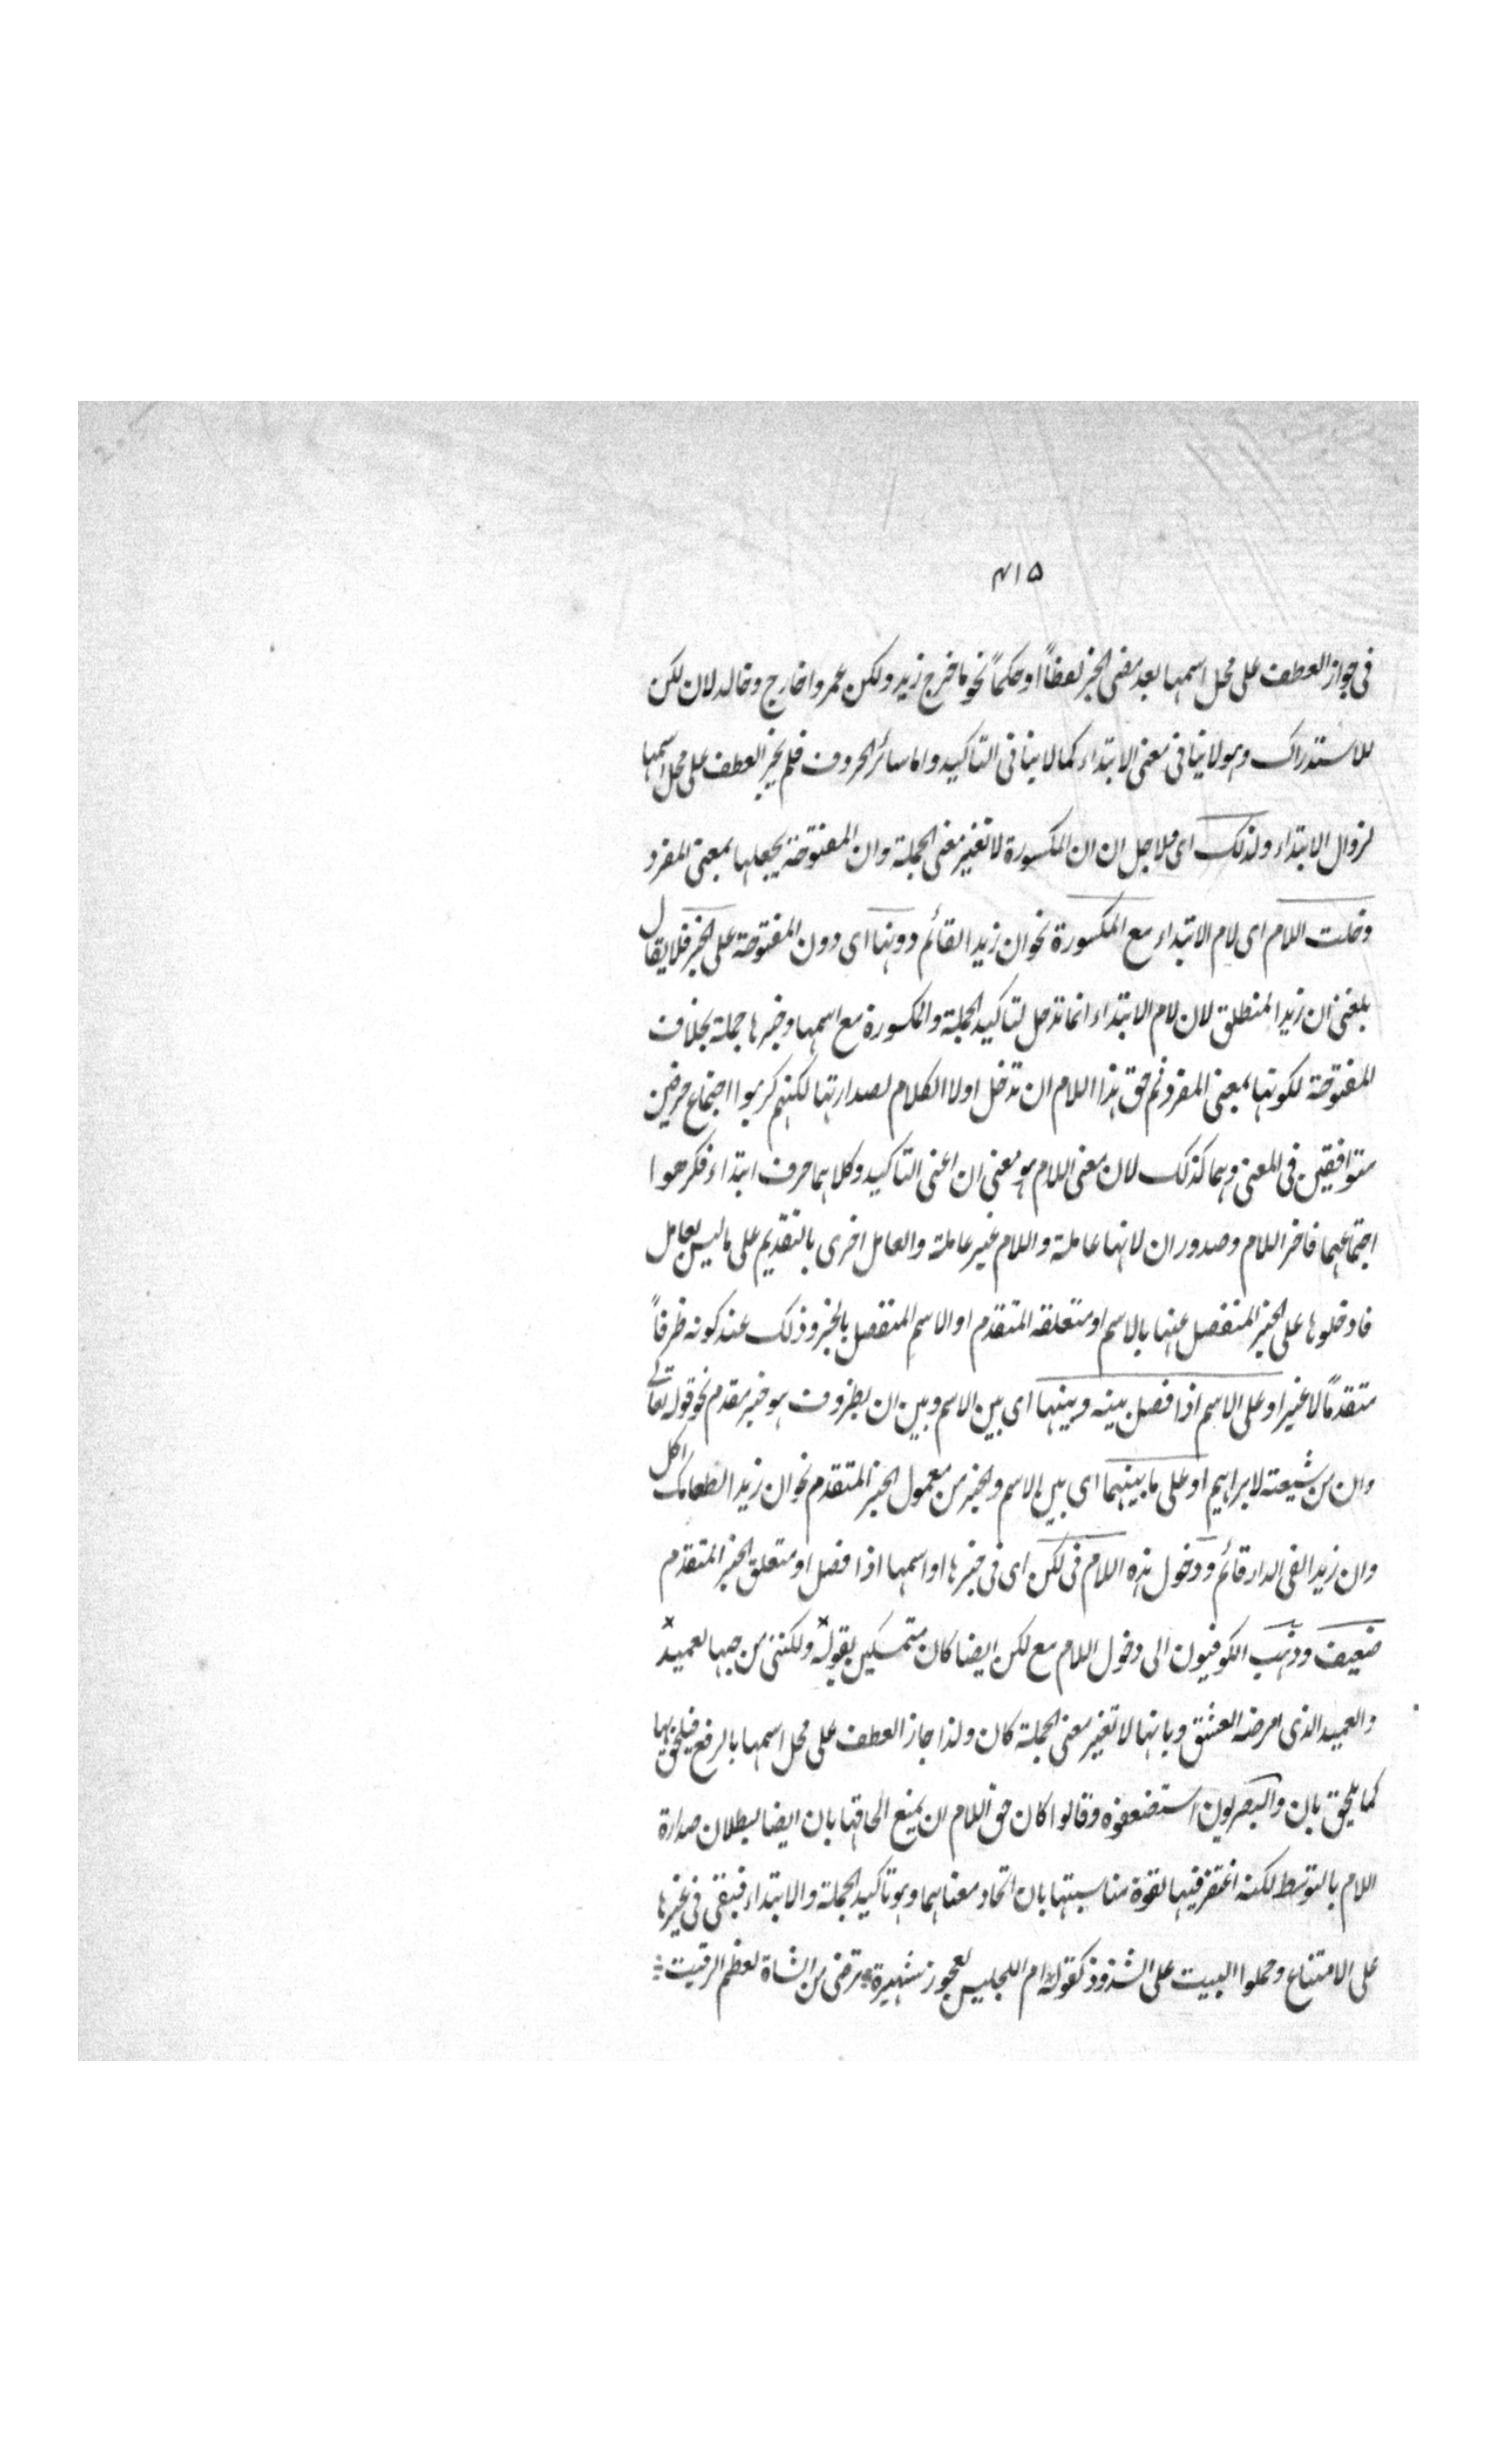 ۴۱۵
فى جواز العطف على محل اسمها بعد مضى الخبر لفظاً او حكماً نحو ما خرج زيد ولكن عمروا خارج وخالد لان لكن
للاستدراك وهو لا ينافى معنى الابتداء كما لا ينافى التاكيد واما سائر الحروف فلم يجز العطف على محل اسمها
لزوال الابتداء ولذلك اى ولاجل ان ان المكسورة لا تغير معنى الجملة وان المفتوحة يجعلها بمعنى المفرد
دخلت اللام اى لام الابتداء مع المكسورة نحو ان زيد القائم دونها اى دون المفتوحة على الخبر فلا يقال
بلغنى ان زيدا لمنطلق لان لام الابتداء انما تدخل لتاكيد الجملة والمكسورة مع اسمها وخبرها جملة بخلاف
المفتوحة لكونها بمعنى المفرد ثم حق هذا اللام ان تدخل اولا الكلام لصدارتها لكنهم كرهوا اجتماع حرفين
متوافقين فى المعنى وهما كذلك لان معنى اللام هو معنى ان اعنى التاكيد وكلاهما حرف ابتداء فكرهوا
اجتماعهما فاخر اللام وصدور ان لانها عاملة واللام غير عاملة والعامل احرى بالتقديم على ما ليس بعامل
فادخلوها على الخبر المنفصل عنها بالاسم او متعلقه المتقدم او الاسم المنفصل بالخبر وذلك عند كونه ظرفاً
متقدماً لا غير او على الاسم اذا فصل بينه وبينها اى بين الاسم وبين ان بظروف هو خبر مقدم نحو قوله تعالى
وان من شيعته لابراهيم او على ما بينهما اى بين الاسم والخبر من معمول الخبر المتقدم نحو ان زيدا لطعامك اكل
وان زيدا لفى الدار قائم ودخول هذه اللام فى لكن اى فى خبرها او اسمها اذا فصل او متعلق الخبر المتقدم
ضعيف وذهب الكوفيون الى دخول اللام مع لكن ايضا كان متمسكين بقوله ولكننى من حبها لعميد
والعميد الذى امرضه العشق وبانها لا تغير معنى الجملة كان ولذا جاز العطف على محل اسمها بالرفع فيلحق بها
كما يلحق بان والبصريون استضعفوه وقالوا كان حق اللام ان يمنع الحاقها بان ايضا لبطلان صدارة
اللام بالتوسط لكنه اغتفر فيها لقوة مناسبتها بان اتحاد معناهما وهو تاكيد الجملة والابتداء فبقى فى غيرها
على الامتناع وحملوا البيت على الشذوذ كقوله ام الحليس لعجوز شهيرة ترضى من الشاة لعظم الرقبة